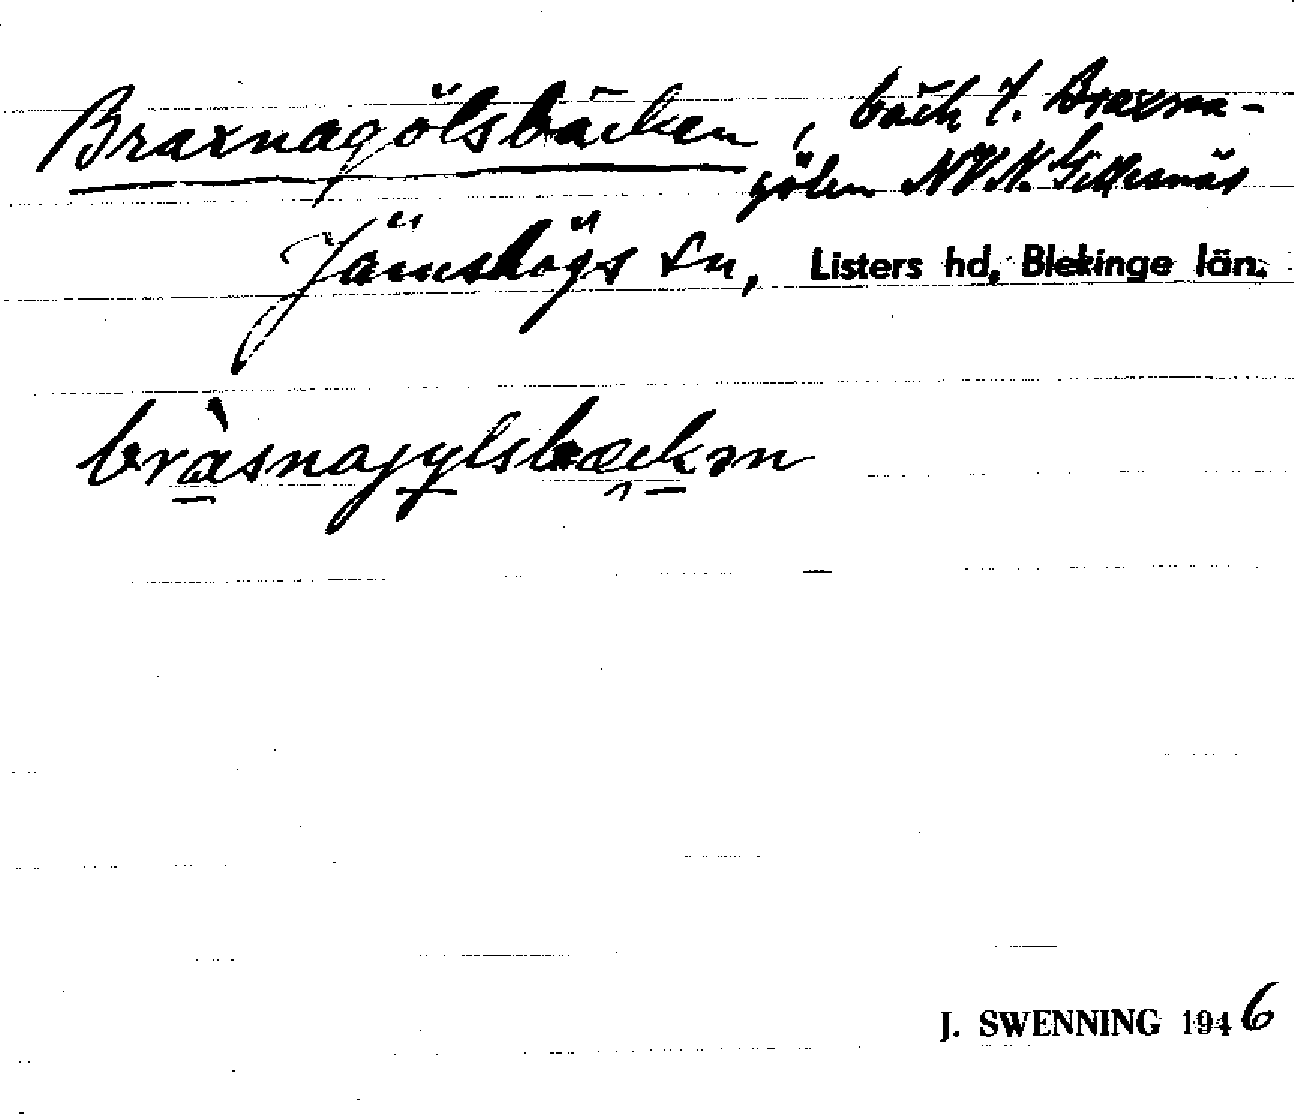 Braxnagölsbäcken, bäck f. Braxna-
gölen NV N. Gillesnäs
Jämshögs sn, Listers hd, Blekinge län.
bràsnajylsbæckən
J. SWENNING 1946